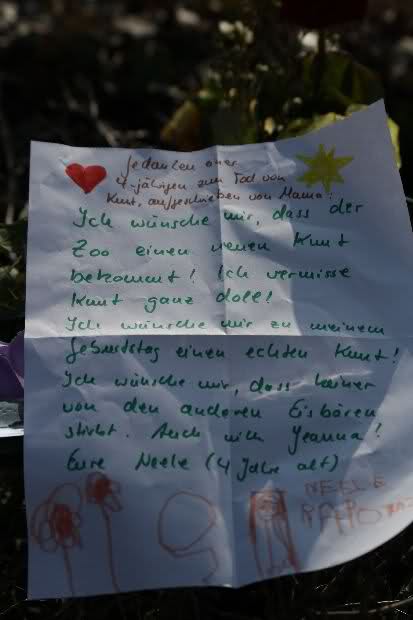 Gedanken einer
4-jährigen zum Tod von
Knut, aufgeschrieben von Mama:
Ich wünsche mir, dass der
Zoo einen neuen Knut
bekommt! Ich vermisse
Knut ganz doll!
Ich wünsche mir zu meinem
Geburtstag einen echten Knut!
Ich wünsche mir, dass keiner
von den anderen Eisbären
stirbt. Auch nich
Eure Neele (4 Jahre alt)
NEELE